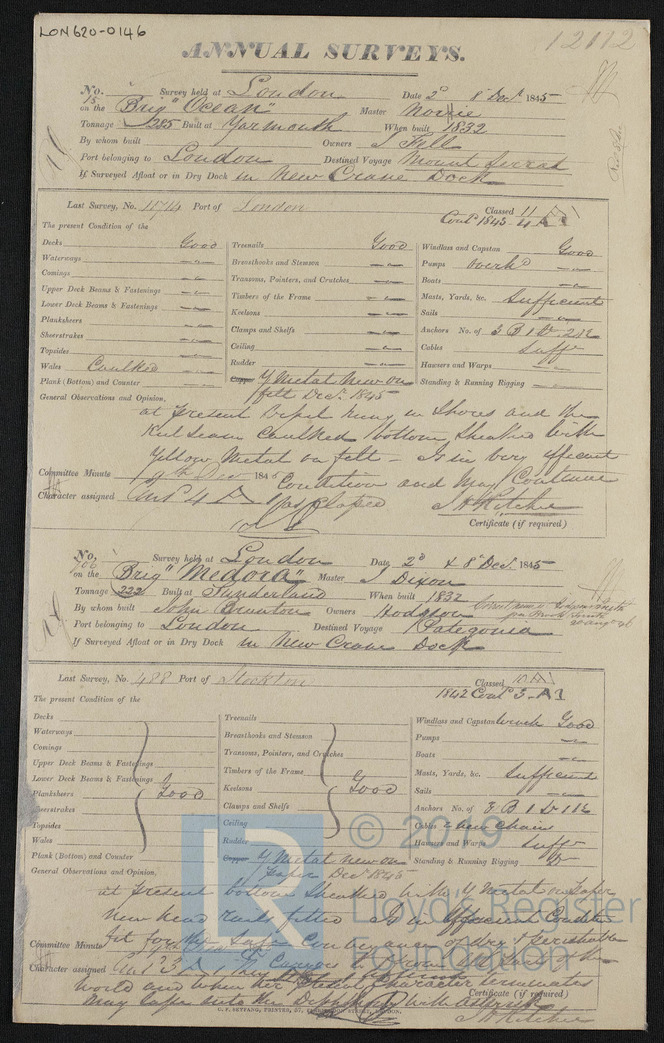 LON620-0146
12112
ANNUAL SURVEYS.
No. 75 Survey held at London Date 2d 8 Decr 1845
on the Brig "Ocean" Master Norrie
Tonnage 285 Built at Yarmouth When built 1832
By whom built Owners J
Port belonging to London Destined Voyage Mount Serrat
If Surveyed Afloat or in Dry Dock in New Crane Dock
Last Survey, No. Port of London Classed 11 A1
Contd 1843-4 A1
The present Condition of the
Decks Good Treenails Good Windlass and Capstan Good
Waterways Breasthooks and Stemson Pumps Overhd
Comings Transoms, Pointers, and Crutches Boats
Upper Deck Beams & Fastenings Timbers of the Frame Masts, Yards, &c. Sufficient
Lower Deck Beams & Fastenings Keelsons Sails
Planksheers Clamps and Shelfs Anchors No. of 3 B 1 St 2 K
Sheerstrakes Ceiling Cables Suff
Topsides Rudder Hawsers and Warps
Wales Caulked Copper Y Metal New on Standing & Running Rigging
Plank (Bottom) and Counter felt Decr. 1845
General Observations and Opinion,
at Present Vessel hung in Shores and the
Keel Seam Caulked bottom Sheathed with
Yellow Metal on felt - Is in very efficient
Committee Minute 9th Dec 1845 Condition and may Continue
Character assigned 4 A as Classed J H Ritchie
Certificate (if required)
No. 706 Survey held at London Date 2d & 8 Decr. 1845
on the Brig "Medora" Master J Dixon
Tonnage 222 Built at Sunderland When built 1832
By whom built John Brunton Owners Hodgson
Port belonging to London Destined Voyage Patagonia
If Surveyed Afloat or in Dry Dock in New Crane Dock
Last Survey, No. 488 Port of Stockton Classed 10 A1
1842 Contd 3 - A1
The present Condition of the
Decks Treenails Windlass and Capstan Winch Good
Waterways Breasthooks and Stemson Pumps
Comings Transoms, Pointers, and Crutches Boats
Upper Deck Beams & Fastenings Timbers of the Frame Masts, Yards, &c. Sufficient
Lower Deck Beams & Fastenings Good Keelsons Good Sails
Planksheers Clamps and Shelfs Anchors No. of 3 B 1 St 1 K
Sheerstrakes Ceiling Cables 2 new Chains
Topsides Rudder Hawsers and Warps Suff
Wales Copper Y Metal new on Standing & Running Rigging Do
Plank (Bottom) and Counter paper Decr 1845
General Observations and Opinion,
at Present bottom Sheathed with Y Metal on Paper
New head rails fitted is in Efficient Condition
Committee Minute fit for the Safe Conveyance of dry & perishable
Character assigned 3 A Cargoes to from all parts of the
world and when her present Character terminates
Certificate (if required)
may lapse into the Diphthong with asterisk
J H Ritchie
C. F. SEYFANG, PRINTER, 57, STREET, LONDON.
© 2019
Lloyd's Register
Foundation
LR